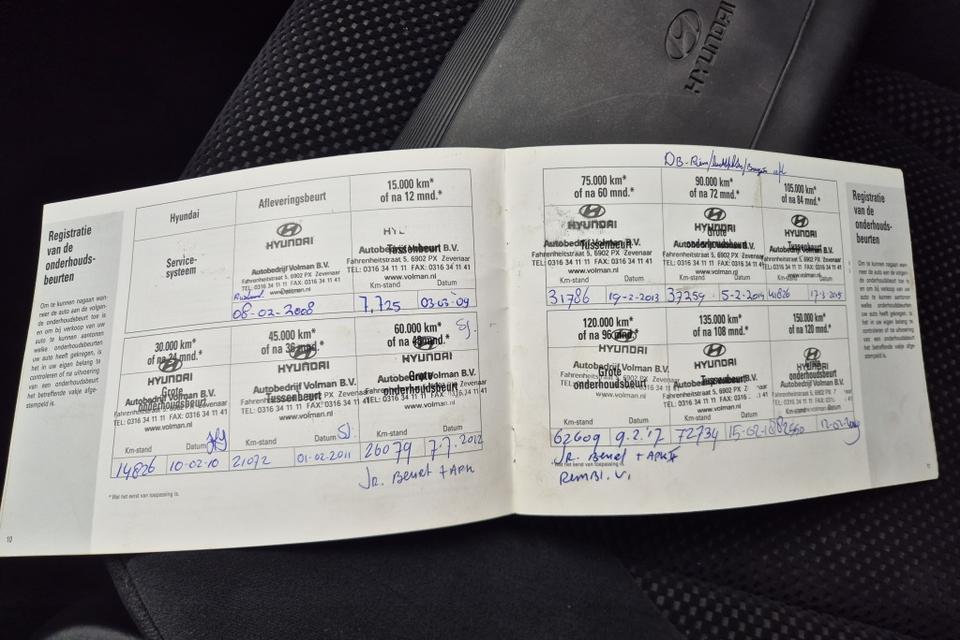 HYUNDAI
Registratie
van de
onderhouds-
beurten
Om te kunnen nagaan wan-
neer de auto aan de volgen-
de onderhoudsbeurt toe is
en om bij verkoop van uw
auto te kunnen aantonen
welke onderhoudsbeurten
uw auto heeft gekregen, is
het in uw eigen belang te
controleren of na uitvoering
van een onderhoudsbeurt
het betreffende vakje afge-
stempeld is.
Hyundai
Service-
systeem
Afleveringsbeurt
HYUNDAI
Autobedrijf Volman B.V.
Fahrenheitstraat 5, 6902 PX Zevenaar
TEL: 0316 34 11 11 FAX: 0316 34 11 41
08-02-2008
15.000 km*
of na 12 mnd.*
Tussenbeurt
Autobedrijf Volman B.V.
Fahrenheitstraat 5, 6902 PX Zevenaar
TEL: 0316 34 11 11 FAX: 0316 34 11 41
www.volman.nl
Km-stand Datum
7,725 03-03-09
30.000 km*
of na 24 mnd.*
HYUNDAI
Grote
onderhoudsbeurt
Autobedrijf Volman B.V.
Fahrenheitstraat 5, 6902 PX Zevenaar
TEL: 0316 34 11 11 FAX: 0316 34 11 41
www.volman.nl
Km-stand Datum
14826 10-02-10
45.000 km*
of na 36 mnd.*
HYUNDAI
Autobedrijf Volman B.V.
Tussenbeurt
Fahrenheitstraat 5, 6902 PX Zevenaar
TEL: 0316 34 11 11 FAX: 0316 34 11 41
www.volman.nl
Km-stand Datum
21072 01-02-2011
60.000 km*
of na 48 mnd.*
HYUNDAI
Grote
onderhoudsbeurt
Autobedrijf Volman B.V.
Fahrenheitstraat 5, 6902 PX Zevenaar
TEL: 0316 34 11 11 FAX: 0316 34 11 41
www.volman.nl
Km-stand Datum
26079 7-7-2012
Jr. Beurt + APK
* Wat het eerst van toepassing is.
10
75.000 km*
of na 60 mnd.*
HYUNDAI
Tussenbeurt
Autobedrijf Volman B.V.
Fahrenheitstraat 5, 6902 PX Zevenaar
TEL: 0316 34 11 11 FAX: 0316 34 11 41
www.volman.nl
Km-stand Datum
31786 19-2-2013
90.000 km*
of na 72 mnd.*
HYUNDAI
Grote
onderhoudsbeurt
Autobedrijf Volman B.V.
Fahrenheitstraat 5, 6902 PX Zevenaar
TEL: 0316 34 11 11 FAX: 0316 34 11 41
www.volman.nl
Km-stand Datum
37259 5-2-2014
105.000 km*
of na 84 mnd.*
HYUNDAI
Tussenbeurt
Autobedrijf Volman B.V.
Fahrenheitstraat 5, 6902 PX Zevenaar
TEL: 0316 34 11 11 FAX: 0316 34 11 41
www.volman.nl
Km-stand Datum
41826 17-3-2015
120.000 km*
of na 96 mnd.*
HYUNDAI
Grote
onderhoudsbeurt
Km-stand Datum
62609 9-2-'17
Jr. Beurt + APK
135.000 km*
of na 108 mnd.*
HYUNDAI
Tussenbeurt
Autobedrijf Volman B.V.
www.volman.nl
Km-stand Datum
72734 15-02-18
150.000 km*
of na 120 mnd.*
HYUNDAI
onderhoudsbeurt
Autobedrijf Volman B.V.
Km-stand Datum
* Wat het eerst van toepassing is.
Registratie
van de
onderhouds-
beurten
Om te kunnen nagaan wan-
neer de auto aan de volgen-
de onderhoudsbeurt toe is
en om bij verkoop van uw
auto te kunnen aantonen
welke onderhoudsbeurten
uw auto heeft gekregen, is
het in uw eigen belang te
controleren of na uitvoering
van een onderhoudsbeurt
het betreffende vakje afge-
stempeld is.
11